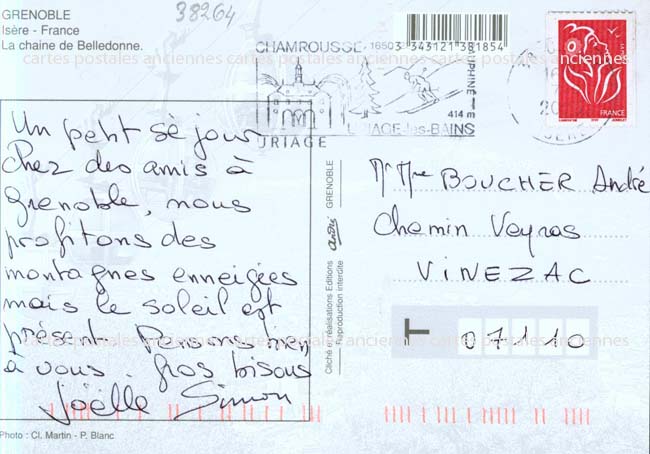 GRENOBLE
Isère - France
La chaine de Belledonne.
38264
3 343121 381854
CHAMROUSSE 1650
DAUPHINÉ
414 m
URIAGE-les-BAINS
URIAGE
FRANCE
cartes postales anciennes cartes postales anciennes cartes postales anciennes
Un petit séjour
Chez des amis à
Grenoble, nous
profitons des
montagnes enneigées
mais le soleil est
présent. Pensons bien
à vous. Gros bisous
Joëlle Simon
Cliché et réalisations Editions André GRENOBLE
reproduction interdite
Mr Mme BOUCHER André
Chemin Veyras
VINEZAC
T 07110
cartes postales anciennes cartes postales anciennes cartes postales anciennes
Photo : Cl. Martin - P. Blanc